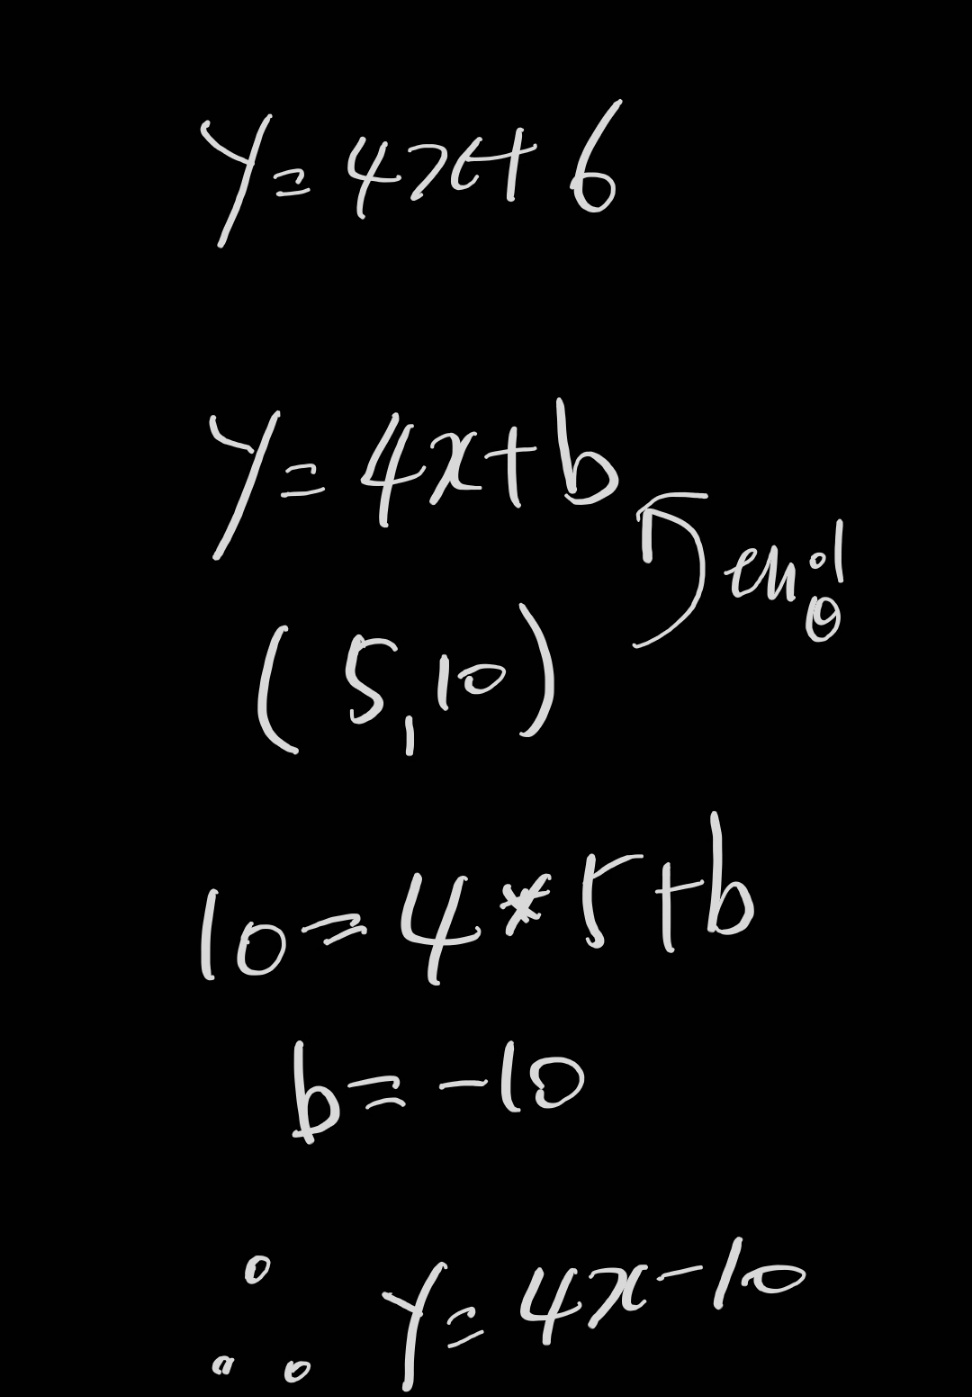 y = 4x + 6
y = 4x + b
(5, 10)
대입
10 = 4 * 5 + b
b = -10
∴ y = 4x - 10